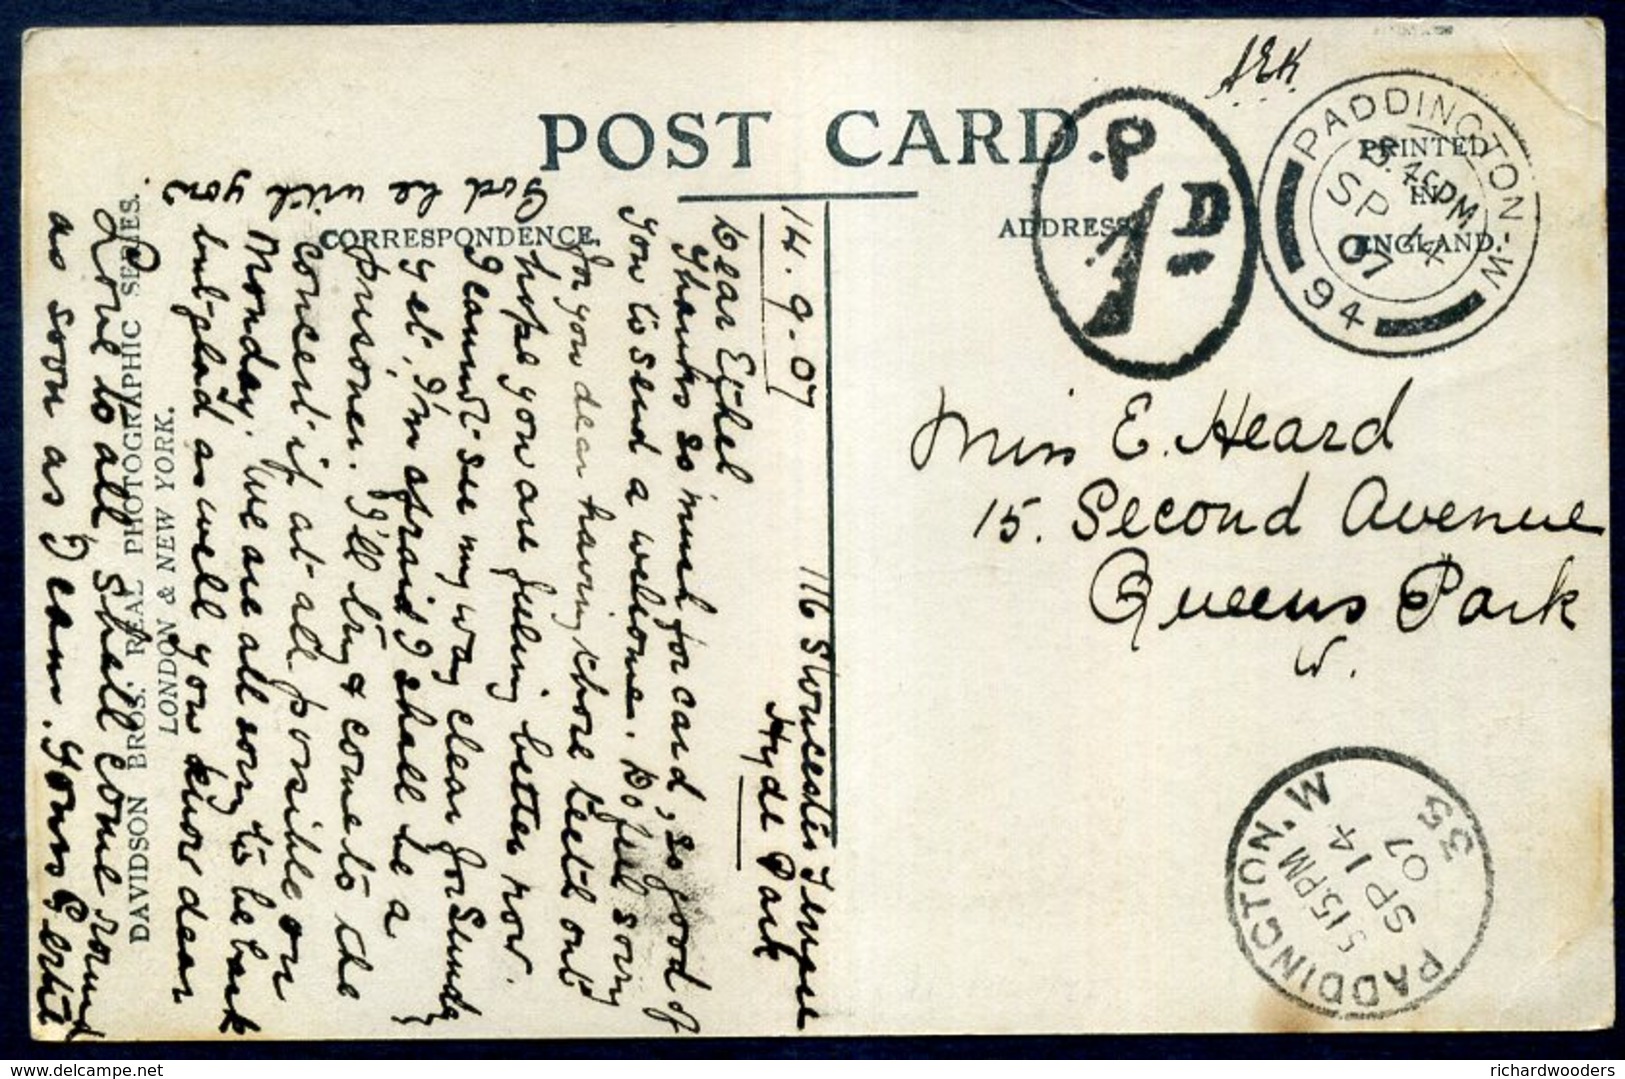 POST CARD
CORRESPONDENCE.
ADDRESS
PRINTED
IN
ENGLAND.
AEK
P
1D
PADDINGTON - W
SP 14
07
94
Miss E. Heard
15. Second Avenue
Queens Park
W.
PADDINGTON. W
5 15. PM
SP 14
07
33
14.9.07
116 Gloucester Terrace
Hyde Park
Dear Ethel
Thanks so much for card, so good of
you to send a welcome. Do feel sorry
for you dear having those teeth out
hope you are feeling better now.
I cannot see my way clear for Sunday
yet, I'm afraid I shall be a
prisoner. I'll try & come to the
Concert if at all possible on
Monday. We are all sorry to be back
but glad as well you know dear
God be with you.
Love to all Shall come round
as soon as I can. Yours Gertie
DAVIDSON BROS. REAL PHOTOGRAPHIC SERIES.
LONDON & NEW YORK.
delcampe.net
richardwooders